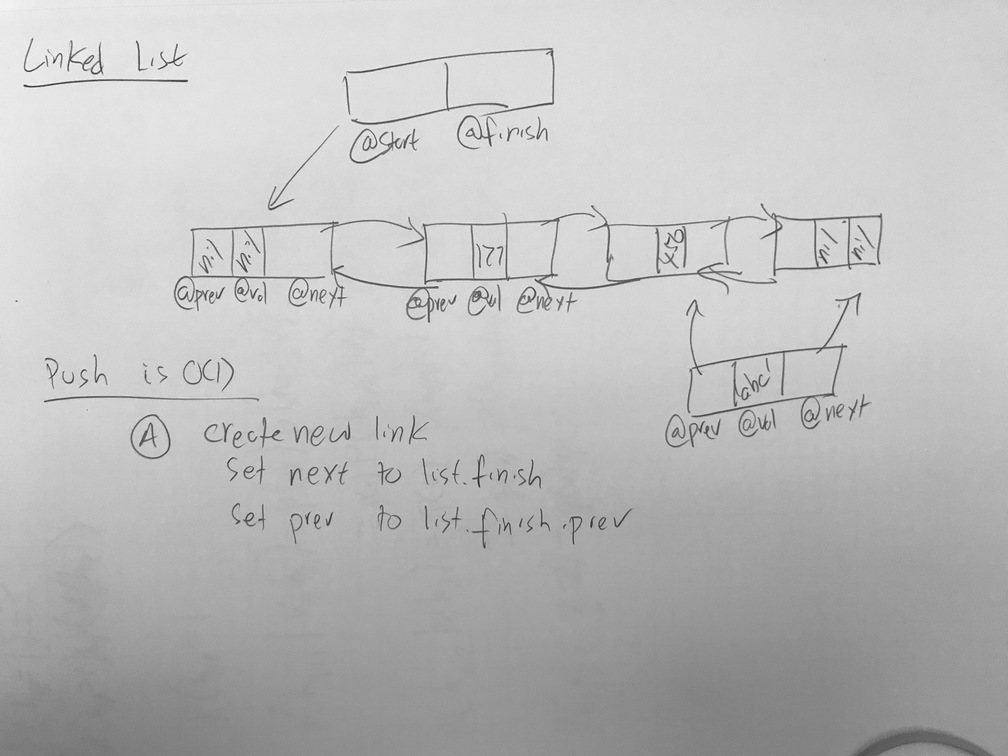 Linked List
@start @finish
nil nil 127 nil nil
@prev @val @next @prev @val @next
'abc'
@prev @val @next
Push is O(1)
A create new link
set next to list.finish
set prev to list.finish.prev